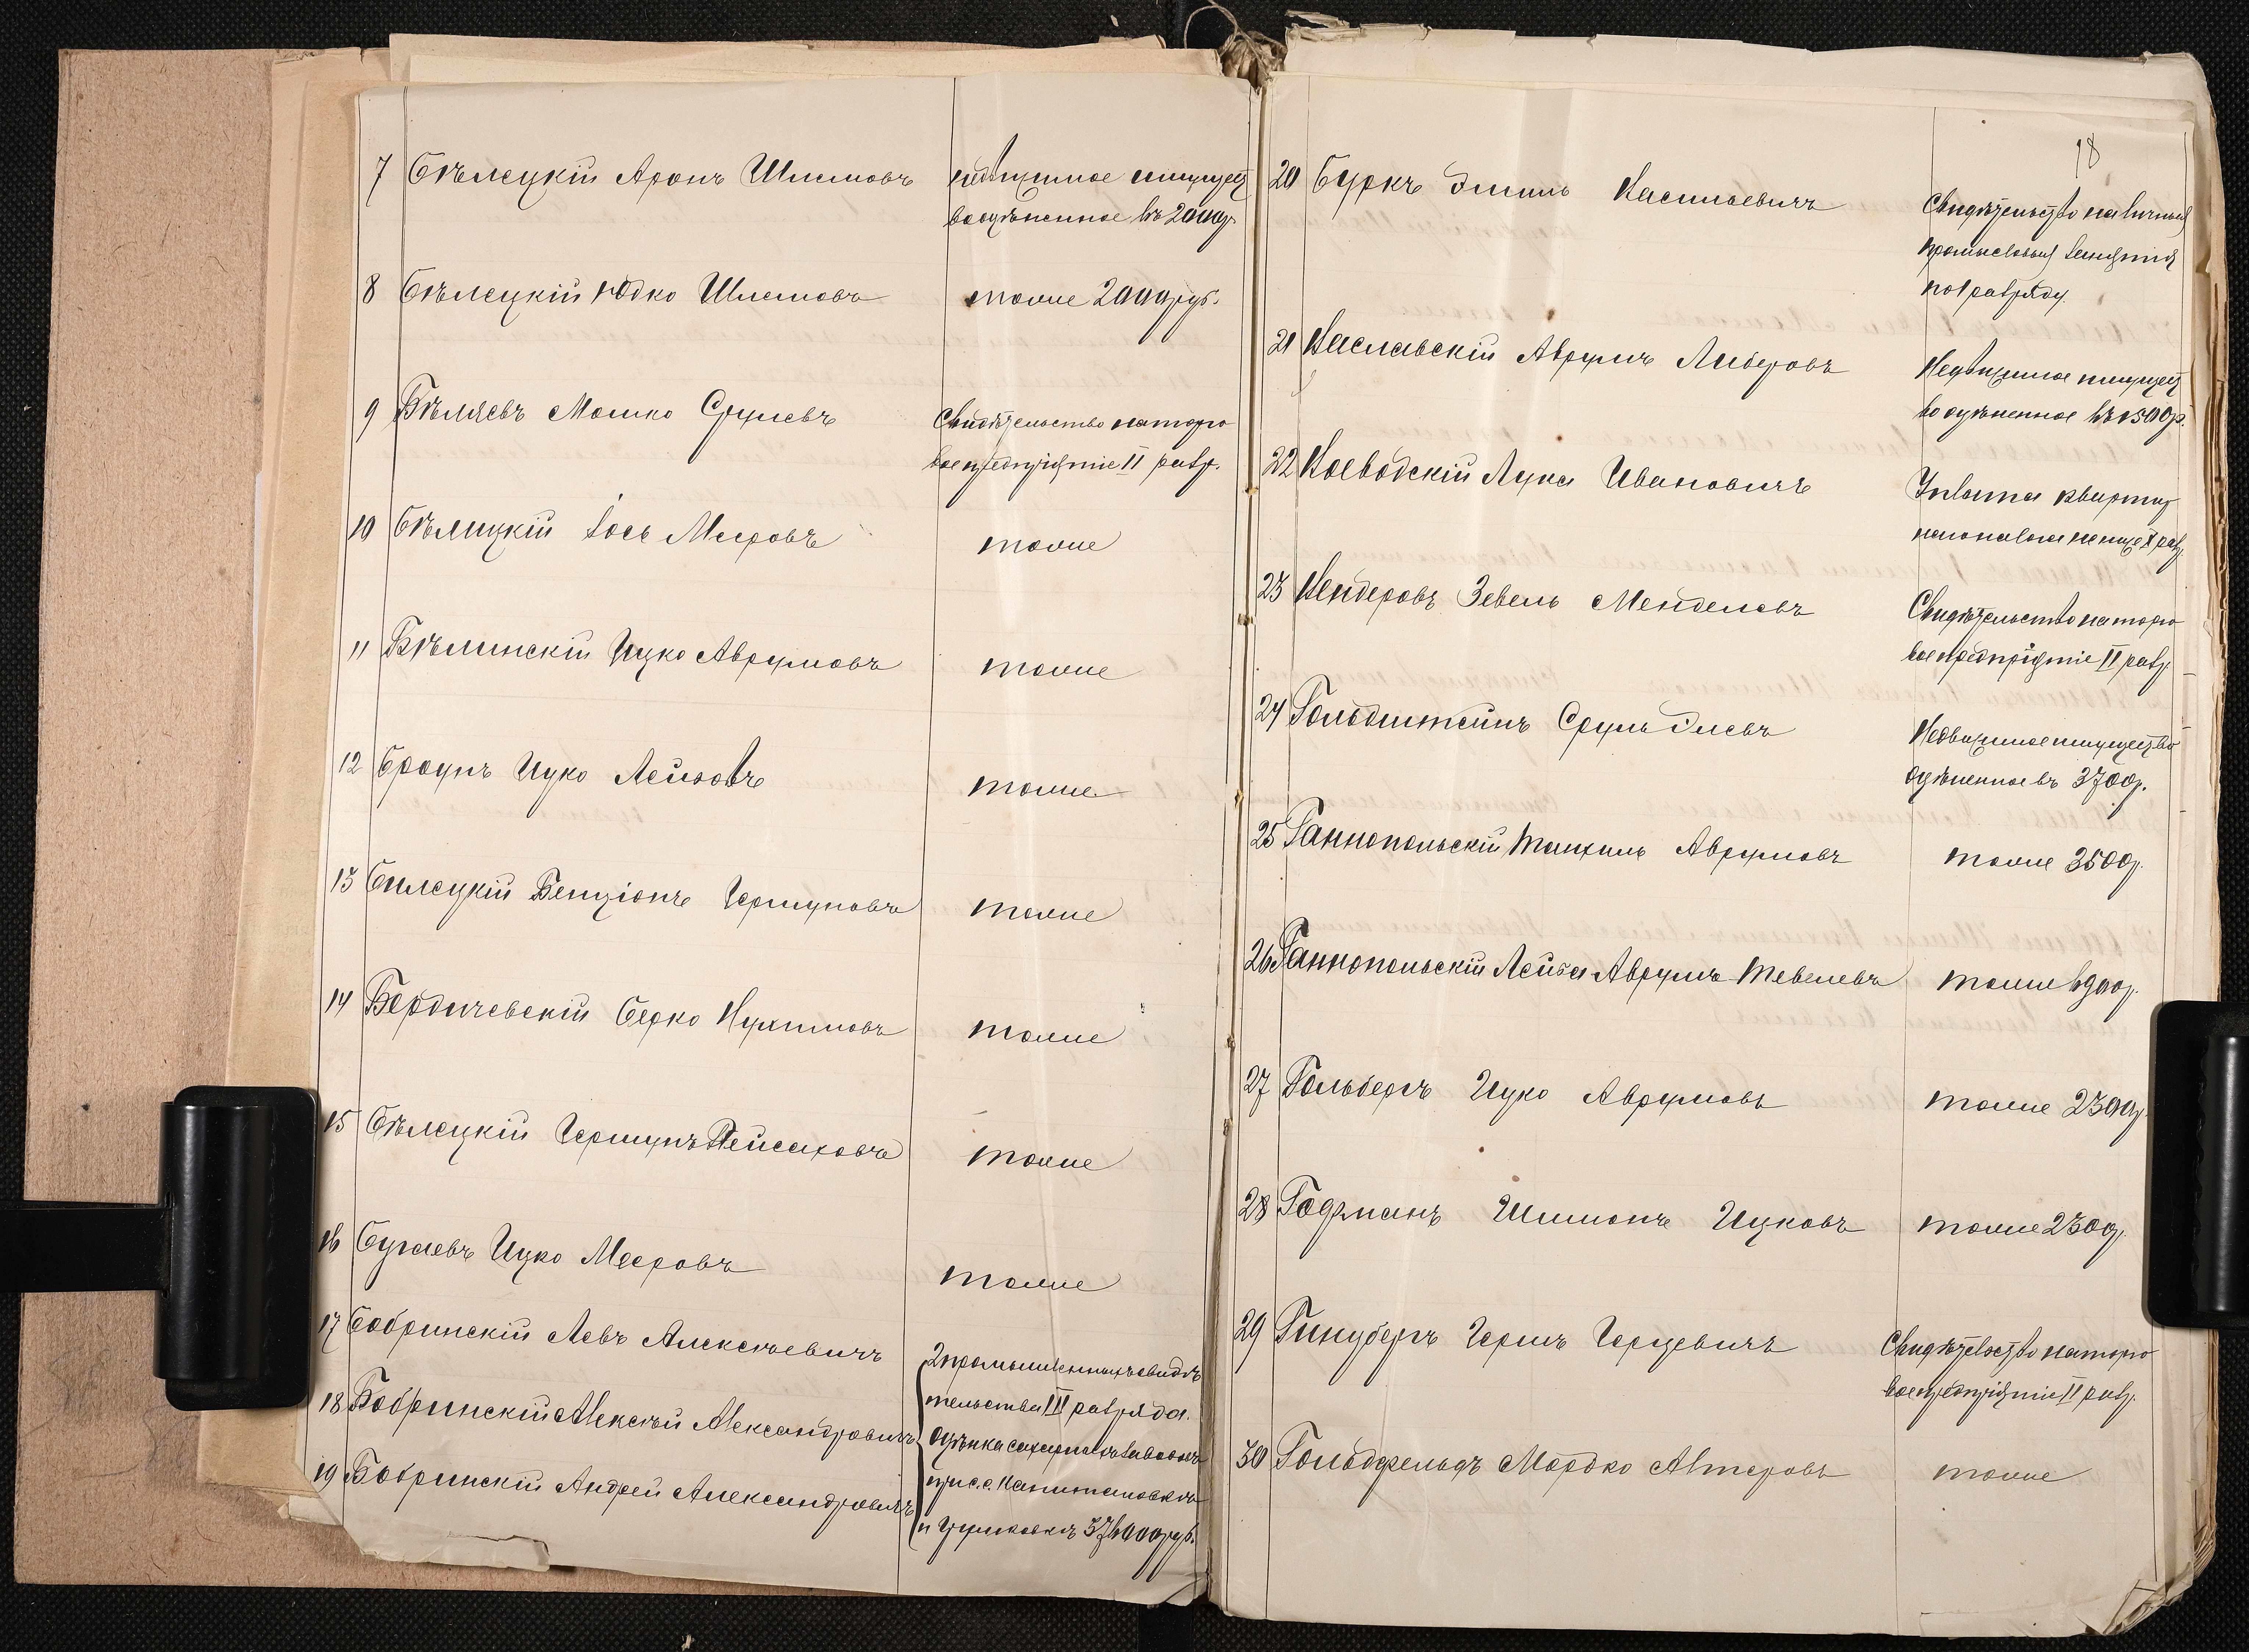 7 Бѣлецкій Аронъ Шлемовъ недвижимое имущест
во оцѣненное въ 2000р.
8 Бѣлецкій Юдко Шлемовъ тоже 2000 руб.
9 Бѣляевъ Мошко Срулевъ Свидѣтельство на торго
вое предпріятіе II разр.
10 Бѣлицкій Іось Мееровъ тоже
11 Бѣлинскій Ицко Аврумовъ тоже
12 Браунъ Ицко Лейзовъ тоже
13 Билецкій Бенціонъ Гершуновъ тоже
14 Бердичевскій Берко Нухимовъ тоже
15 Бѣлецкій Гершунъ Пейсаховъ тоже
16 Бугаевъ Ицко Мееровъ тоже
17 Бобринскій Левъ Алексѣевичъ
18 Бобринскій Алексѣй Александровичъ
19 Бобринскій Андрей Александровичъ
2 промышленныхъ свидѣ
тельства III разряда.
Оцѣнка сахарныхъ заводовъ
при с.с. Капитановкѣ
и 376000 руб.
18
20 Буркъ Эмиль Васильевичъ Свидѣтельство на личныя
промысловыя занятія
по 1 разряду.
21 Ваславскій Аврумъ Либеровъ Недвижимое имущест
во оцѣненное въ 1500р.
22 Воеводскій Лука Ивановичъ Уплата квартир
наго налога не ниже X разр.
23 Вендеровъ Зевель Менделевъ Свидѣтельство на торго
вое предпріятіе II разр.
24 Гольдштейнъ Сруль Элевъ Недвижимое имущество
оцѣненное въ 3700р.
25 Ганнопольскій Танхиль Аврумовъ тоже 3500р.
26 Ганнопольскій Лейба Аврумъ-Тевелевъ тоже
27 Гольбергъ Ицко Аврумовъ тоже 2300р.
28 Шимонъ Ицковъ тоже 2300р.
29 Гинцбергъ Гершъ Герцевичъ Свидѣтельство на торго
вое предпріятіе II разр.
30 Гольдфельдъ Мордко Алтеровъ тоже